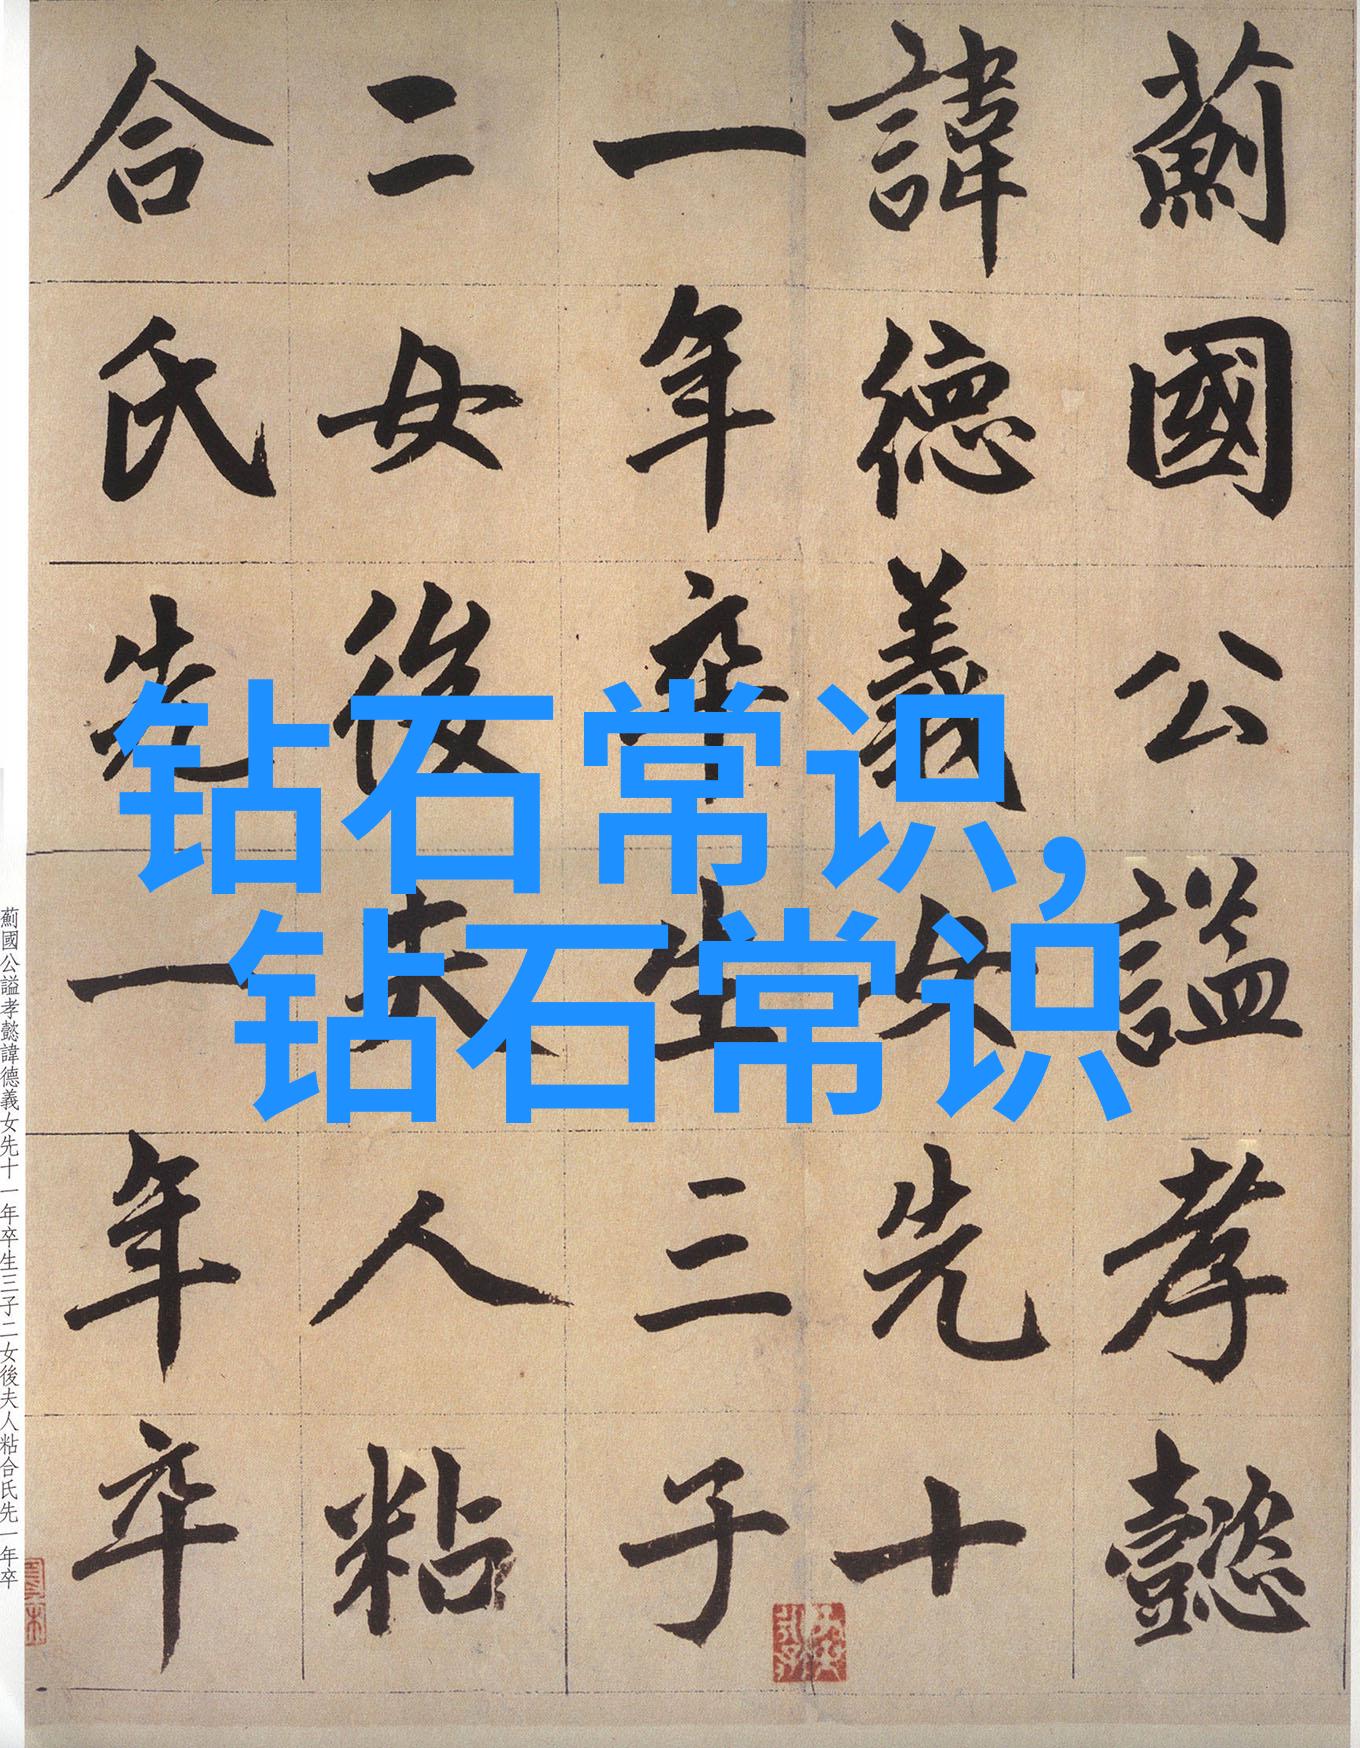 薊國公謚孝懿
諱德義女先十
一年卒生三子
二女後夫人粘
合氏先一年卒
薊國公謚孝懿諱德義女先十一年卒生三子二女後夫人粘合氏先一年卒
钻石常识,
钻石常识